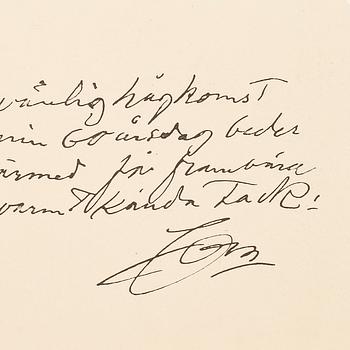 vänlig hågkomst
min 60 årsdag beder
ärmed få frambära
varmt kända Tack!
Zorn